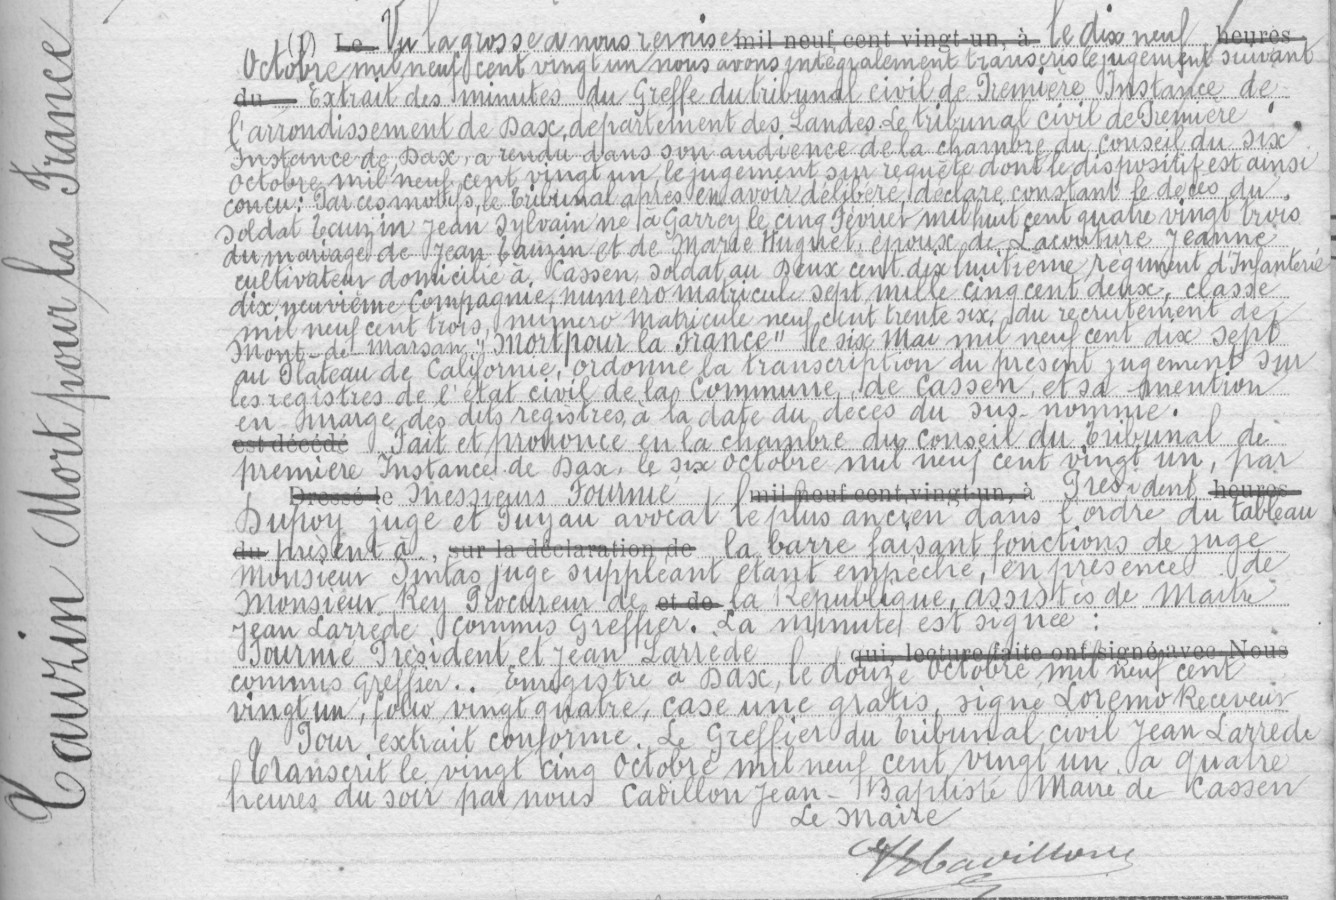 Tauzin Mort pour la France
(1) Le Vu la grosse a nous remise mil neuf cent vingt-un, à le dix neuf heures
Octobre mil neuf cent vingt un nous avons intégralement transcris le jugement suivant
du Extrait des minutes du Greffe du tribunal civil de Première Instance de
l'arrondissement de Dax, département des Landes. Le tribunal civil de Première
Instance de Dax, a rendu dans son audience de la chambre du conseil du six
Octobre mil neuf cent vingt un le jugement sur requête dont le dispositif est ainsi
concu: Par ces motifs, le Tribunal après en avoir délibéré, déclare constant le décès du
soldat Tauzin Jean Sylvain né à Garrey le cinq Février mil huit cent quatre vingt trois
du mariage de Jean Tauzin et de Marie Huguet, époux de Lacouture Jeanne
cultivateur domicilié à Cassen, soldat au Deux cent dix huitième régiment d'Infanterie
dix neuvième Compagnie, numéro matricule sept mille cinq cent deux, classe
mil neuf cent trois, numéro matricule neuf cent trente six, du recrutement de
Mont-de-Marsan, "Mort pour la France" le six Mai mil neuf cent dix sept
au Plateau de Californie, ordonne la transcription du présent jugement sur
les registres de l'état civil de la Commune de Cassen, et sa mention
en marge des dits registres, à la date du décès du sus-nommé.
est décédé Fait et prononcé en la chambre du Conseil du Tribunal de
première Instance de Dax, le six Octobre mil neuf cent vingt un, par
Dressé le Messieurs Fournié mil neuf cent vingt-un, à Président heures
Dupoy juge et Puyau avocat le plus ancien dans l'ordre du tableau
du présent à , sur la déclaration de la barre faisant fonctions de juge
Monsieur Pintas juge suppléant étant empêché, en présence de
Monsieur Rey Procureur de et de la République, assistés de Maître
Jean Larrède commis Greffier. La minute est signée:
Fournié Président et Jean Larrède qui, lecture faite ont signé avec Nous
commis Greffier.. Enregistré à Dax, le douze Octobre mil neuf cent
vingt un, folio vingt quatre, case une gratis, signé Loremo Receveur
Pour extrait conforme. Le Greffier du Tribunal civil Jean Larrède
Transcrit le vingt cinq Octobre mil neuf cent vingt un à quatre
heures du soir par nous Cavillon Jean-Baptiste Maire de Cassen
Le Maire
JB Cavillon